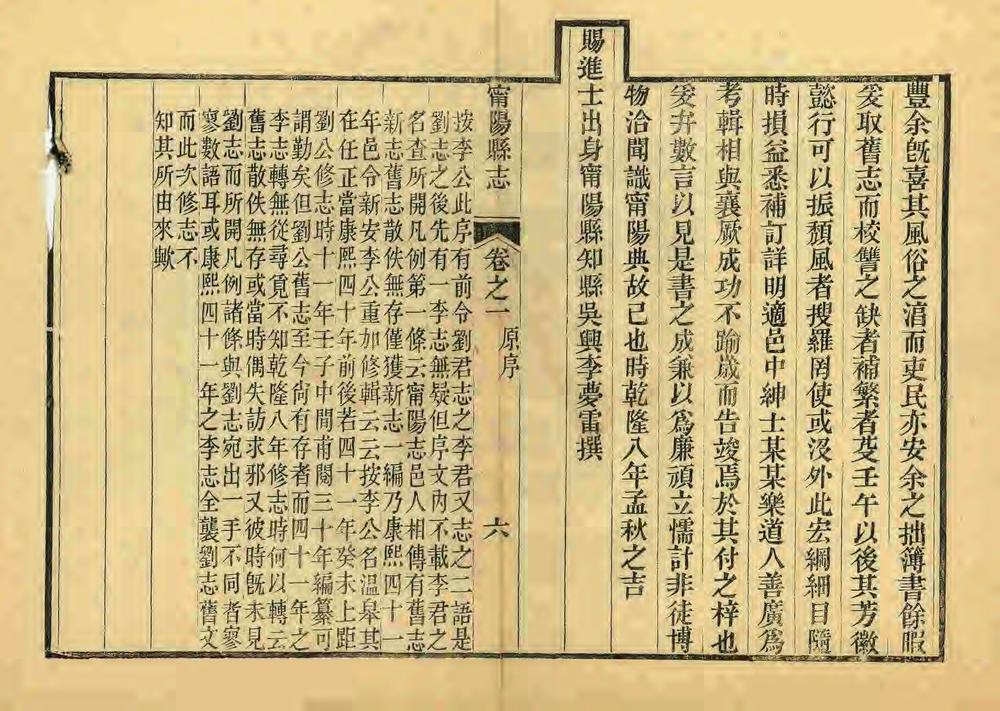 豐余旣喜其風俗之湻而吏民亦安余之拙簿書餘暇
爰取舊志而校讐之缺者補繁者芟壬午以後其芳徽
懿行可以振頽風者搜羅罔使或沒外此宏綱細目隨
時損益悉補訂詳明適邑中紳士某某樂道人善廣爲
考輯相與襄厥成功不踰歲而告竣焉於其付之梓也
爰弁數言以見是書之成兼以爲廉頑立懦計非徒博
物洽聞識甯陽典故已也時乾隆八年孟秋之吉
賜進士出身甯陽縣知縣吳興李夢雷撰
甯陽縣志 卷之一 原序 六
按李公此序有前令劉君志之李君又志之二語是
劉志之後先有一李志無疑但序文內不載李君之
名查所開凡例第一條云甯陽志邑人相傳有舊志
新志舊志散佚無存僅獲新志一編乃康熙四十一
年邑令新安李公重加修輯云云按李公名溫皋其
在任正當康熙四十年前後若四十一年癸未上距
劉公修志時十一年壬子中閒甫閱三十年編纂可
謂勤矣但劉公舊志至今尙有存者而四十一年之
李志轉無從尋覓不知乾隆八年修志時何以轉云
舊志散佚無存或當時偶失訪求邪又彼時旣未見
劉志而所開凡例諸條與劉志宛出一手不同者寥
寥數語耳或康熙四十一年之李志全襲劉志舊文
而此次修志不
知其所由來歟